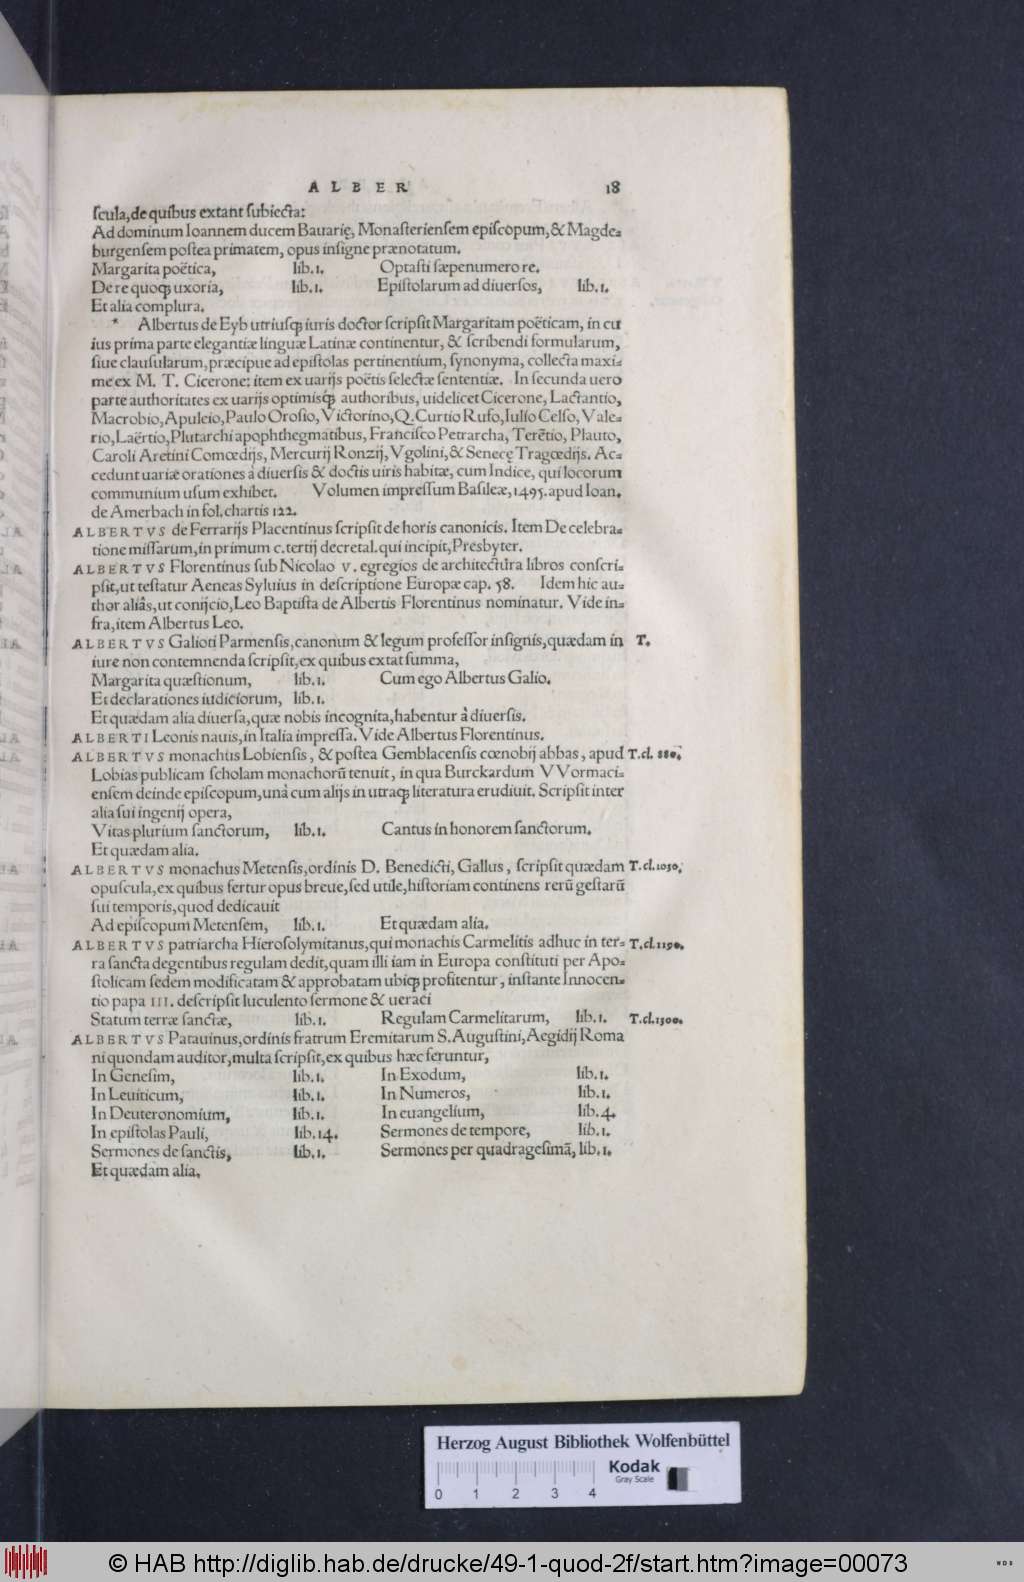 ALBER 18
ſcula, de quibus extant ſubiecta:
Ad dominum Ioannem ducem Bauarię, Monaſterienſem epiſcopum, & Magde-
burgenſem poſtea primatem, opus inſigne prænotatum.
Margarita poëtica, lib.1. Optaſti ſæpenumero re.
De re quoq; uxoria, lib.1. Epiſtolarum ad diuerſos, lib.1.
Et alia complura.
* Albertus de Eyb utriuſq; iuris doctor ſcripſit Margaritam poëticam, in cu
ius prima parte elegantiæ linguæ Latinæ continentur, & ſcribendi formularum,
ſiue clauſularum, præcipue ad epiſtolas pertinentium, ſynonyma, collecta maxi-
me ex M. T. Cicerone: item ex uarijs poëtis ſelectæ ſententiæ. In ſecunda uero
parte authoritates ex uarijs optimisq́; authoribus, uidelicet Cicerone, Lactantio,
Macrobio, Apuleio, Paulo Oroſio, Victorino, Q. Curtio Rufo, Iulio Celſo, Vale-
rio, Laërtio, Plutarchi apophthegmatibus, Franciſco Petrarcha, Terẽtio, Plauto,
Caroli Aretini Comœdijs, Mercurij Ronzij, Vgolini, & Senecę Tragœdijs. Ac-
cedunt uariæ orationes à diuerſis & doctis uiris habitæ, cum Indice, qui locorum
communium uſum exhibet. Volumen impreſſum Baſileæ, 1495. apud Ioan.
de Amerbach in fol. chartis 122.
ALBERTVS de Ferrarijs Placentinus ſcripſit de horis canonicis. Item De celebra-
tione miſſarum, in primum c. tertij decretal. qui incipit, Presbyter.
ALBERTVS Florentinus ſub Nicolao V. egregios de architectura libros conſcri-
pſit, ut teſtatur Aeneas Syluius in deſcriptione Europæ cap. 58. Idem hic au-
thor aliâs, ut conijcio, Leo Baptiſta de Albertis Florentinus nominatur. Vide in-
fra, item Albertus Leo.
ALBERTVS Galioti Parmenſis, canonum & legum profeſſor inſignis, quædam in T.
iure non contemnenda ſcripſit, ex quibus extat ſumma,
Margarita quæſtionum, lib.1. Cum ego Albertus Galio.
Et declarationes iudiciorum, lib.1.
Et quædam alia diuerſa, quæ nobis incognita, habentur à diuerſis.
ALBERTI Leonis nauis, in Italia impreſſa. Vide Albertus Florentinus.
ALBERTVS monachus Lobienſis, & poſtea Gemblacenſis cœnobij abbas, apud T.cl. 880.
Lobias publicam ſcholam monachorũ tenuit, in qua Burckardum VVormaci-
enſem deinde epiſcopum, unà cum alijs in utraq; literatura erudiuit. Scripſit inter
alia ſui ingenij opera,
Vitas plurium ſanctorum, lib.1. Cantus in honorem ſanctorum.
Et quædam alia.
ALBERTVS monachus Metenſis, ordinis D. Benedicti, Gallus, ſcripſit quædam T.cl.1050.
opuſcula, ex quibus fertur opus breue, ſed utile, hiſtoriam continens rerũ geſtarũ
ſui temporis, quod dedicauit
Ad epiſcopum Metenſem, lib.1. Et quædam alia.
ALBERTVS patriarcha Hieroſolymitanus, qui monachis Carmelitis adhuc in ter- T.cl.1190.
ra ſancta degentibus regulam dedit, quam illi iam in Europa conſtituti per Apo-
ſtolicam ſedem modificatam & approbatam ubiq; profitentur, inſtante Innocen-
tio papa III. deſcripſit luculento ſermone & ueraci
Statum terræ ſanctæ, lib.1. Regulam Carmelitarum, lib.1. T.cl.1300.
ALBERTVS Patauinus, ordinis fratrum Eremitarum S. Auguſtini, Aegidij Roma
ni quondam auditor, multa ſcripſit, ex quibus hæc feruntur,
In Geneſim, lib.1. In Exodum, lib.1.
In Leuiticum, lib.1. In Numeros, lib.1.
In Deuteronomium, lib.1. In euangelium, lib.4.
In epiſtolas Pauli, lib.14. Sermones de tempore, lib.1.
Sermones de ſanctis, lib.1. Sermones per quadrageſimã, lib.1.
Et quædam alia.
Herzog August Bibliothek Wolfenbüttel
Kodak
Gray Scale
0 1 2 3 4
© HAB http://diglib.hab.de/drucke/49-1-quod-2f/start.htm?image=00073
WDB